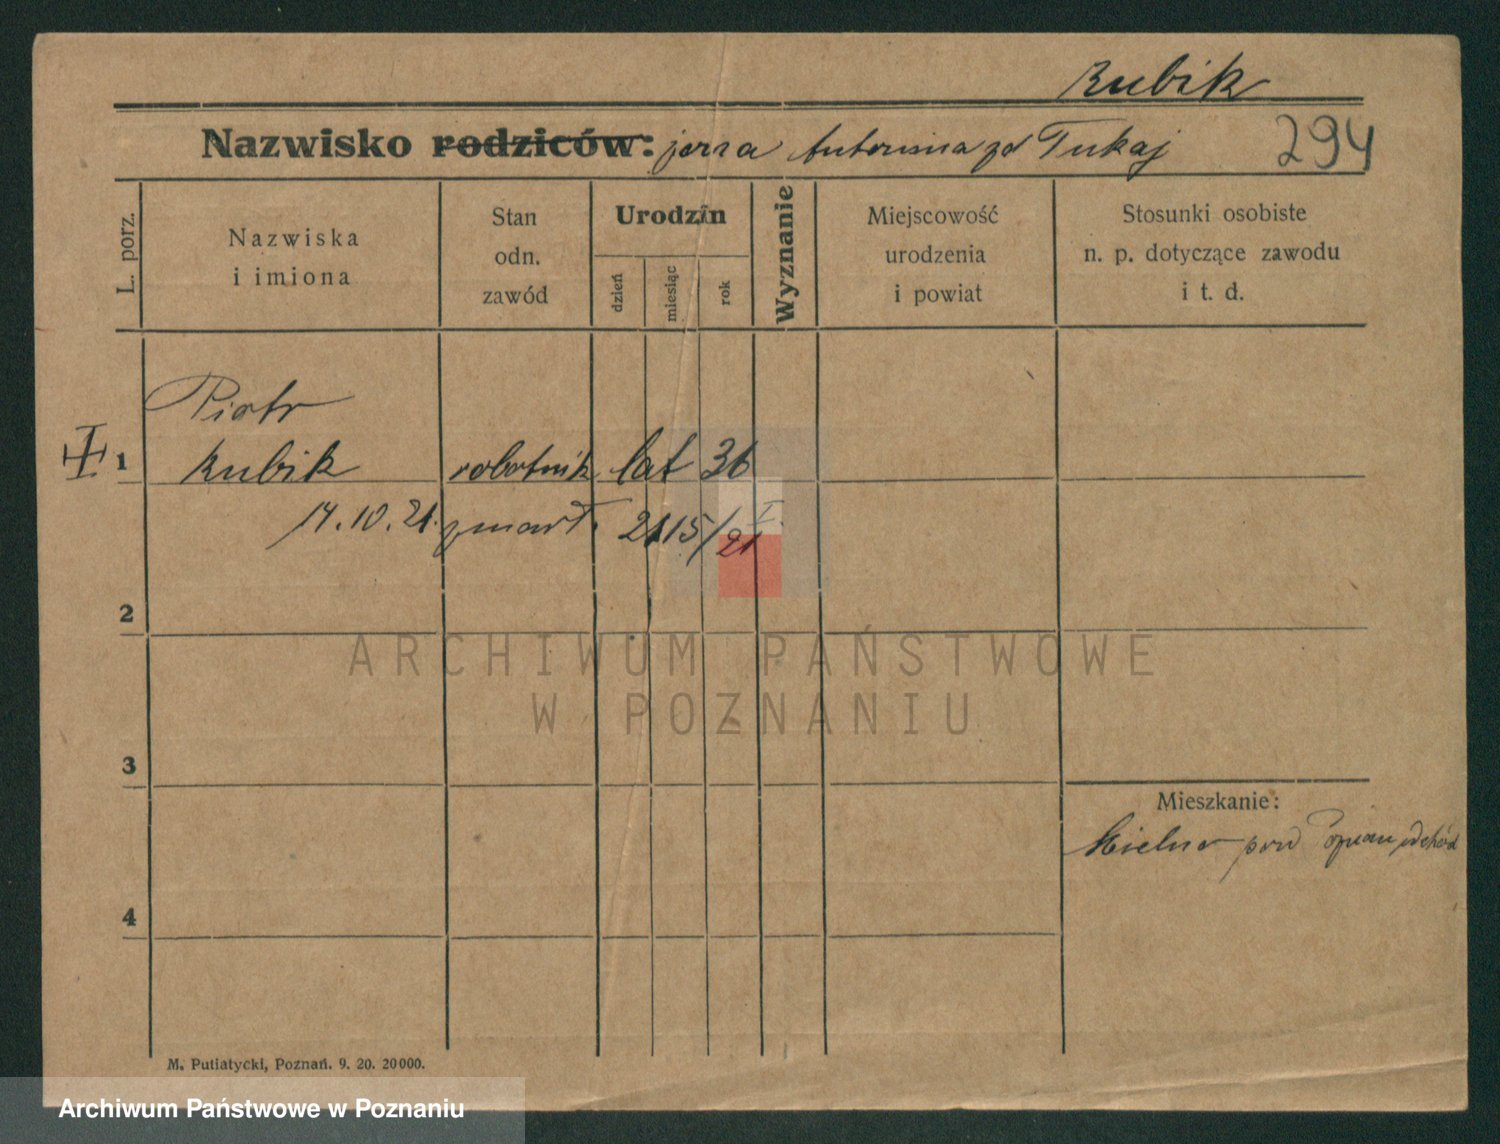 Rubik
Nazwisko rodziców: żona Antonina zd Tukaj 294
L. porz.
Nazwiska
i imiona
Stan
odn.
zawód
Urodzin
dzień
miesiąc
rok
Wyznanie
Miejscowość
urodzenia
i powiat
Stosunki osobiste
n. p. dotyczące zawodu
i t. d.
Piotr
1 Rubik robotnik lat 36
14.10.21. zmarł. 2115/21 I
2
3
4
Mieszkanie:
Mielno pow Poznań wschód
M. Putiatycki, Poznań. 9. 20. 20000.
ARCHIWUM PAŃSTWOWE
W POZNANIU
Archiwum Państwowe w Poznaniu